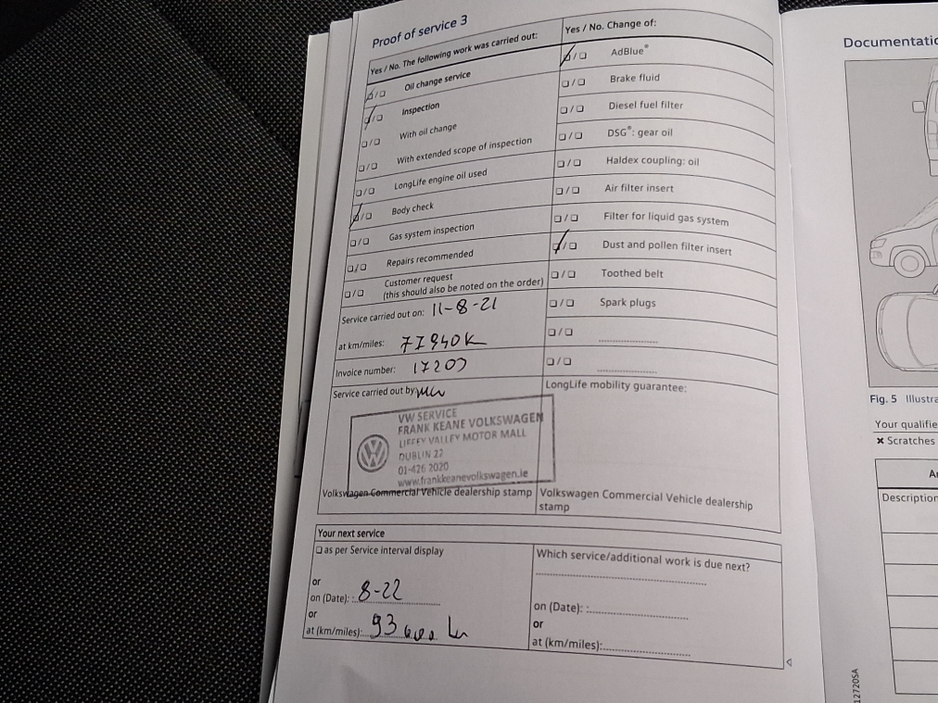 Proof of service 3
Yes / No. The following work was carried out:
Oil change service
Inspection
With oil change
With extended scope of inspection
LongLife engine oil used
Body check
Gas system inspection
Repairs recommended
Customer request
(this should also be noted on the order)
Service carried out on: 11-8-21
at km/miles:
Invoice number: 17203
Service carried out by:
VW SERVICE
FRANK KEANE VOLKSWAGEN
LIFFEY VALLEY MOTOR MALL
DUBLIN 22
01-426 2020
www.frankkeanevolkswagen.ie
Volkswagen Commercial Vehicle dealership stamp
Yes / No. Change of:
AdBlue®
Brake fluid
Diesel fuel filter
DSG®: gear oil
Haldex coupling: oil
Air filter insert
Filter for liquid gas system
Dust and pollen filter insert
Toothed belt
Spark plugs
LongLife mobility guarantee:
Volkswagen Commercial Vehicle dealership
stamp
Your next service
as per Service interval display
or
on (Date): 8-22
or
at (km/miles): 93 000 km
Which service/additional work is due next?
on (Date):
or
at (km/miles):
Documentatio
Fig. 5 Illustra
Your qualifie
✖ Scratches
Description
12720SA